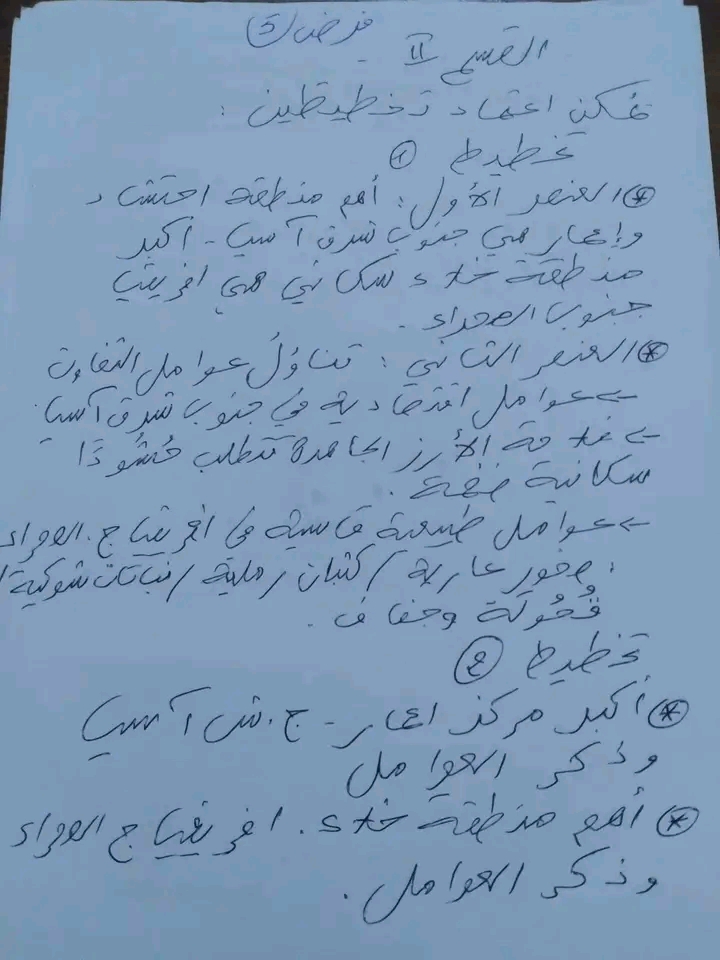 فرض (5)
القسم II
يمكن اعتماد تخطيطين :
تخطيط (1)
* العنصر الأول : أهم منطقة احتشاد
وإعمار هي جنوب شرق آسيا - أكبر
منطقة خلاء سكاني هي افريقيا
جنوب الصحراء .
* العنصر الثاني : تناول عوامل التفاوت
← عوامل اقتصادية في جنوب شرق آسيا
← فلاحة الأرز المجاهدة تتطلب حُشُودًا
سكانية ضخمة .
← عوامل طبيعية قاسية في افريقيا ج. الصحراء
: صخور عارية / كثبان رملية / نباتات شوكية /
قُحُولَة وجفاف .
تخطيط (2)
* أكبر مركز اعمار - ج. ش آسيا
وذكر العوامل
* أهم منطقة خلاء . افريقيا ج الصحراء
وذكر العوامل .